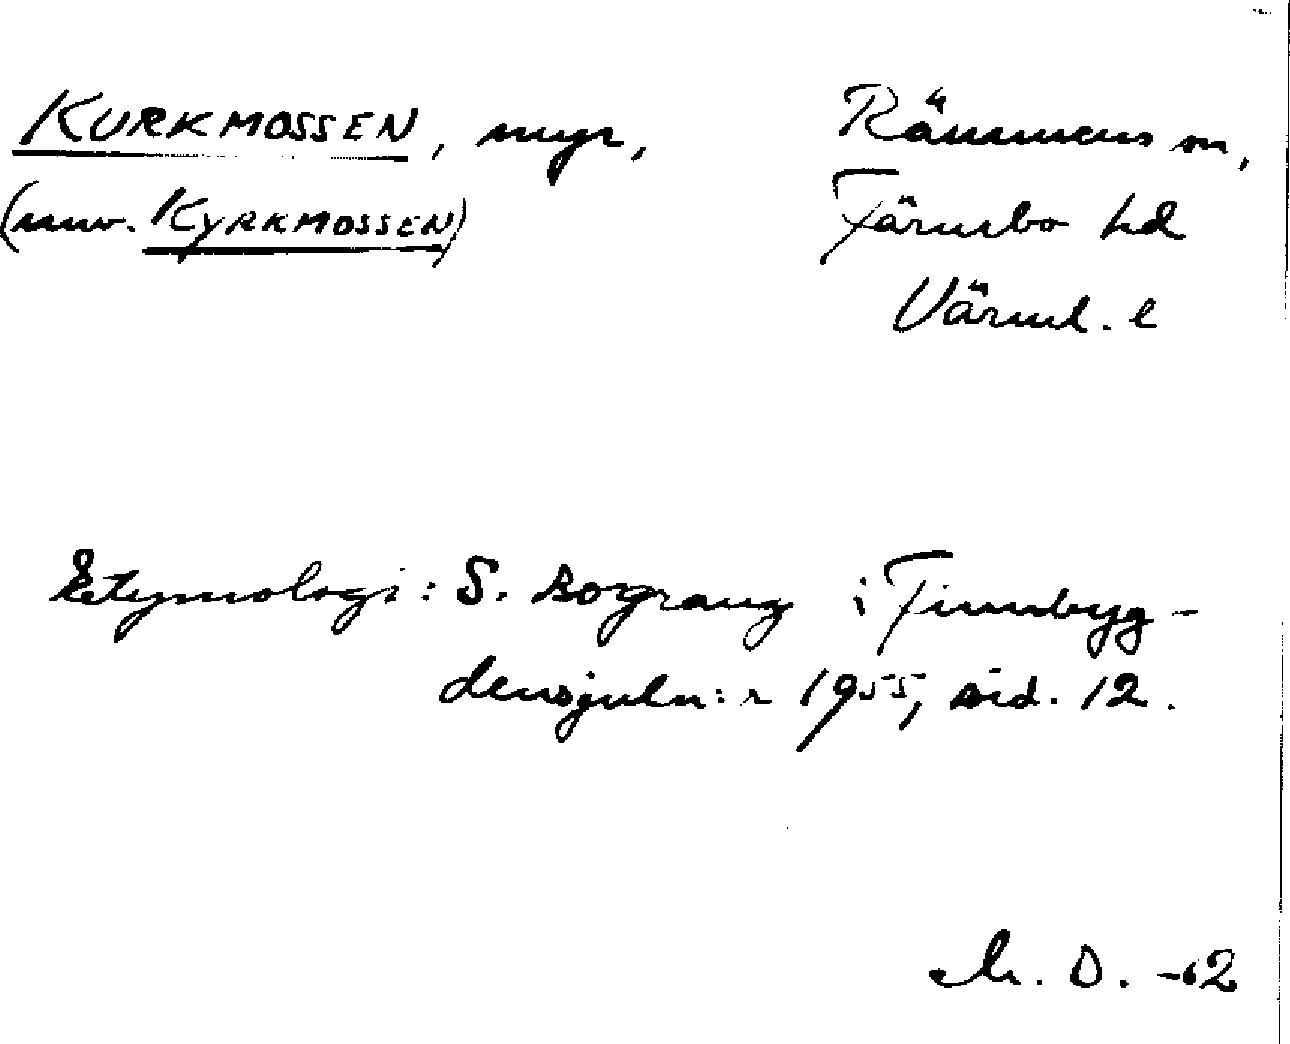 KURKMOSSEN, myr,
(nuv. KYRKMOSSEN)
Rämmens sn,
Färnebo hd
Värml. l
Etymologi: S. Bograng i Finnbyg-
densjuln:r 1955, sid. 12.
M. D. -62